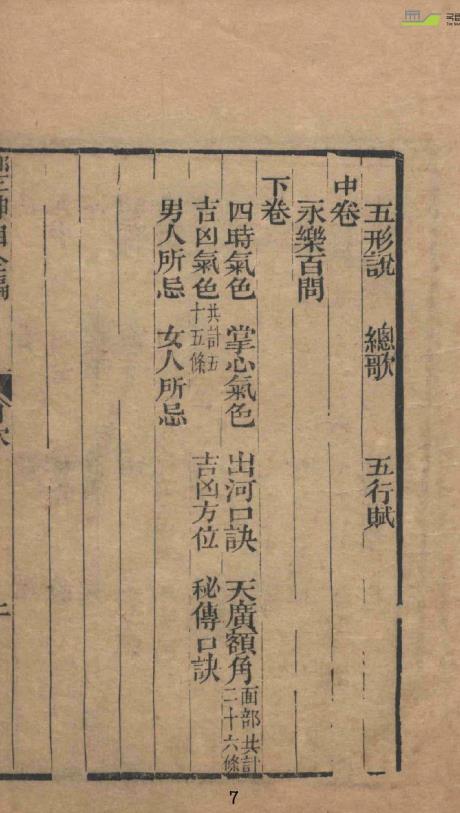 五形說 總歌 五行賦
中卷
永樂百問
下卷
四時氣色 掌心氣色 出河口訣 天廣額角 面部共計二十六條
吉凶氣色 共計五十五條 吉凶方位 秘傳口訣
男人所忌 女人所忌
7